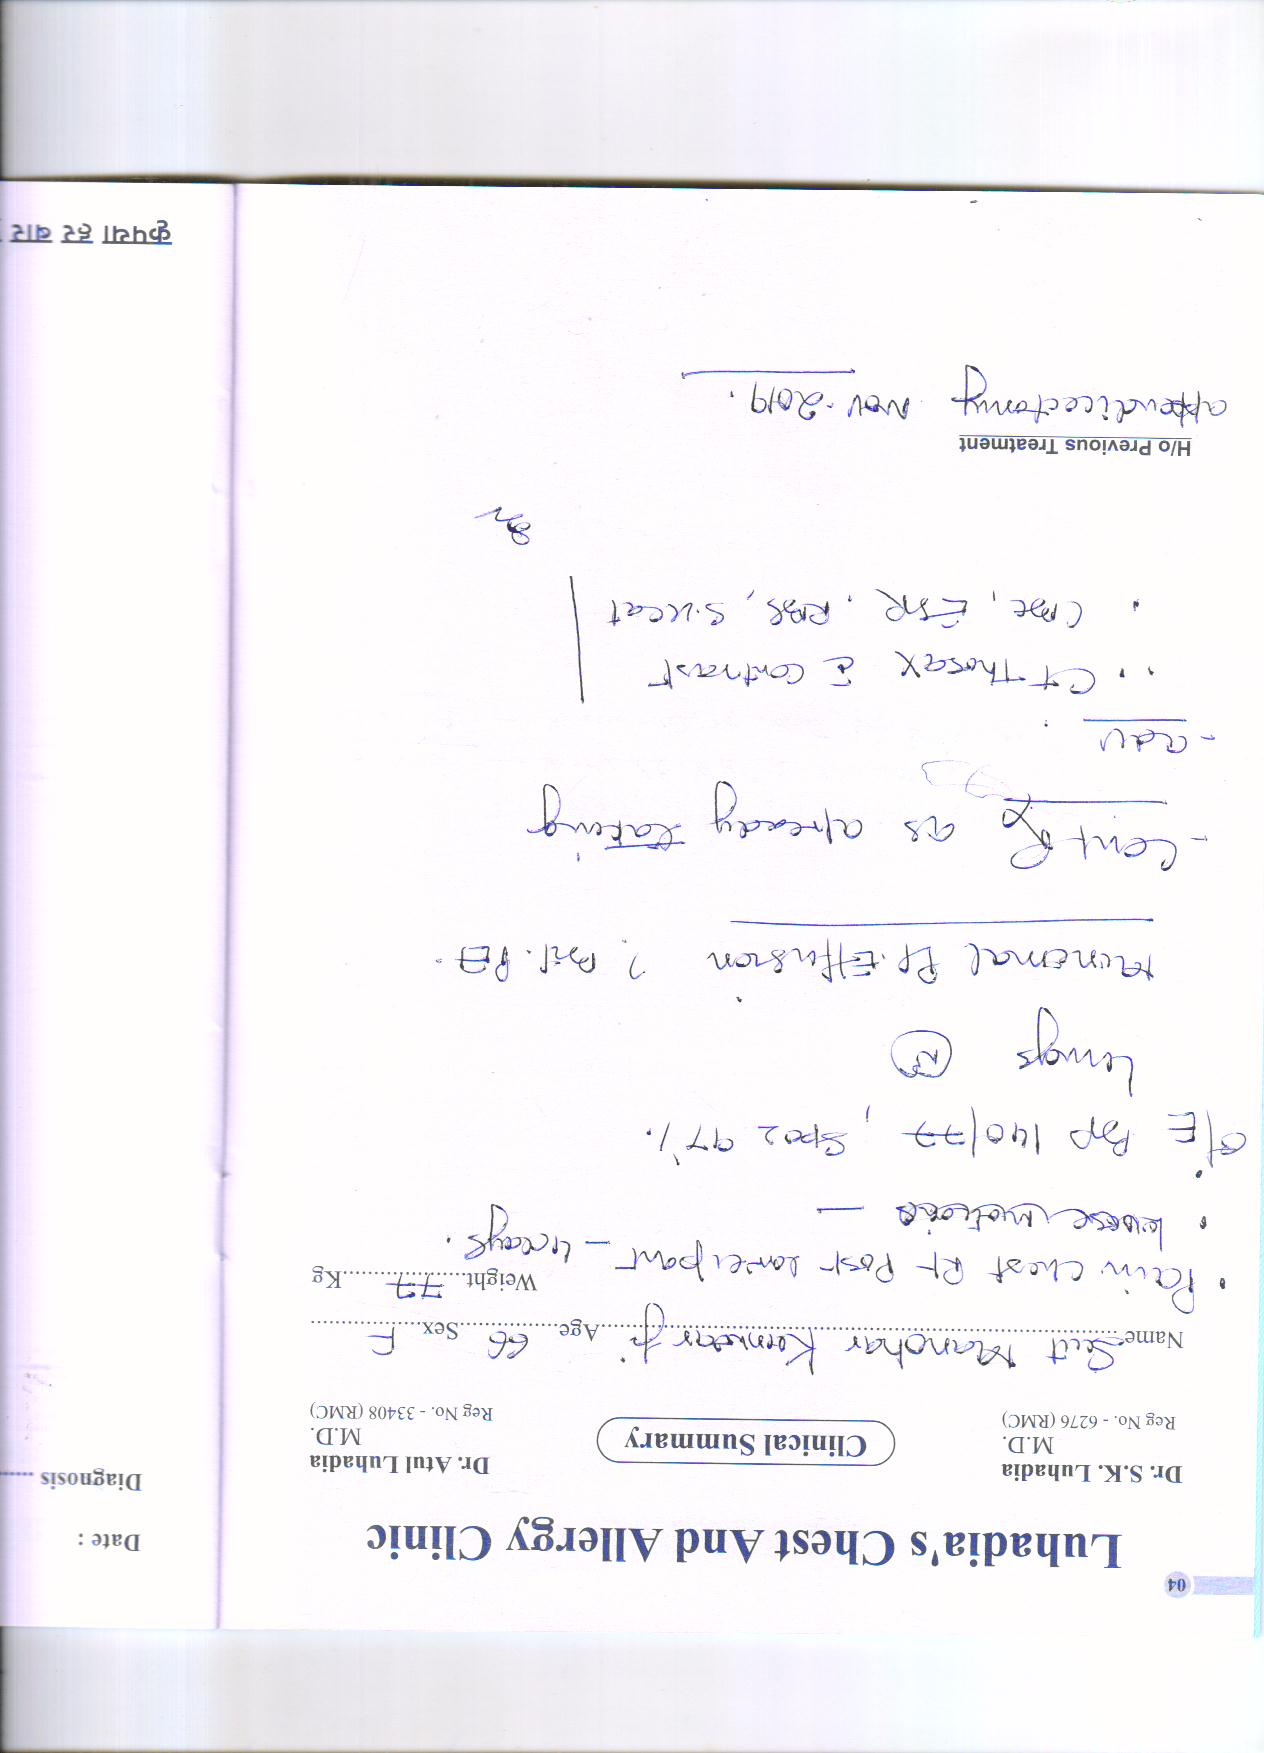 04
Luhadia's Chest And Allergy Clinic
Dr. S.K. Luhadia
M.D.
Reg No. - 6276 (RMC)
Clinical Summary
Dr. Atul Luhadia
M.D.
Reg No. - 33408 (RMC)
Name Smt Manohar Kanwar ji Age 66 Sex F
Weight 77 Kg
• Pain Chest Rt Post lower part - 4 days.
• loose motions -
O/E BP 140/77, SpO2 97%
Lungs N
Minimal Pl. Effusion ?
- Cont Rx as already taking
- adv
• CT Thorax c contrast
• CBC, ESR, RBS, S. creat
H/o Previous Treatment
appendicectomy Nov-2019.
Date :
Diagnosis
कृपया हर बार